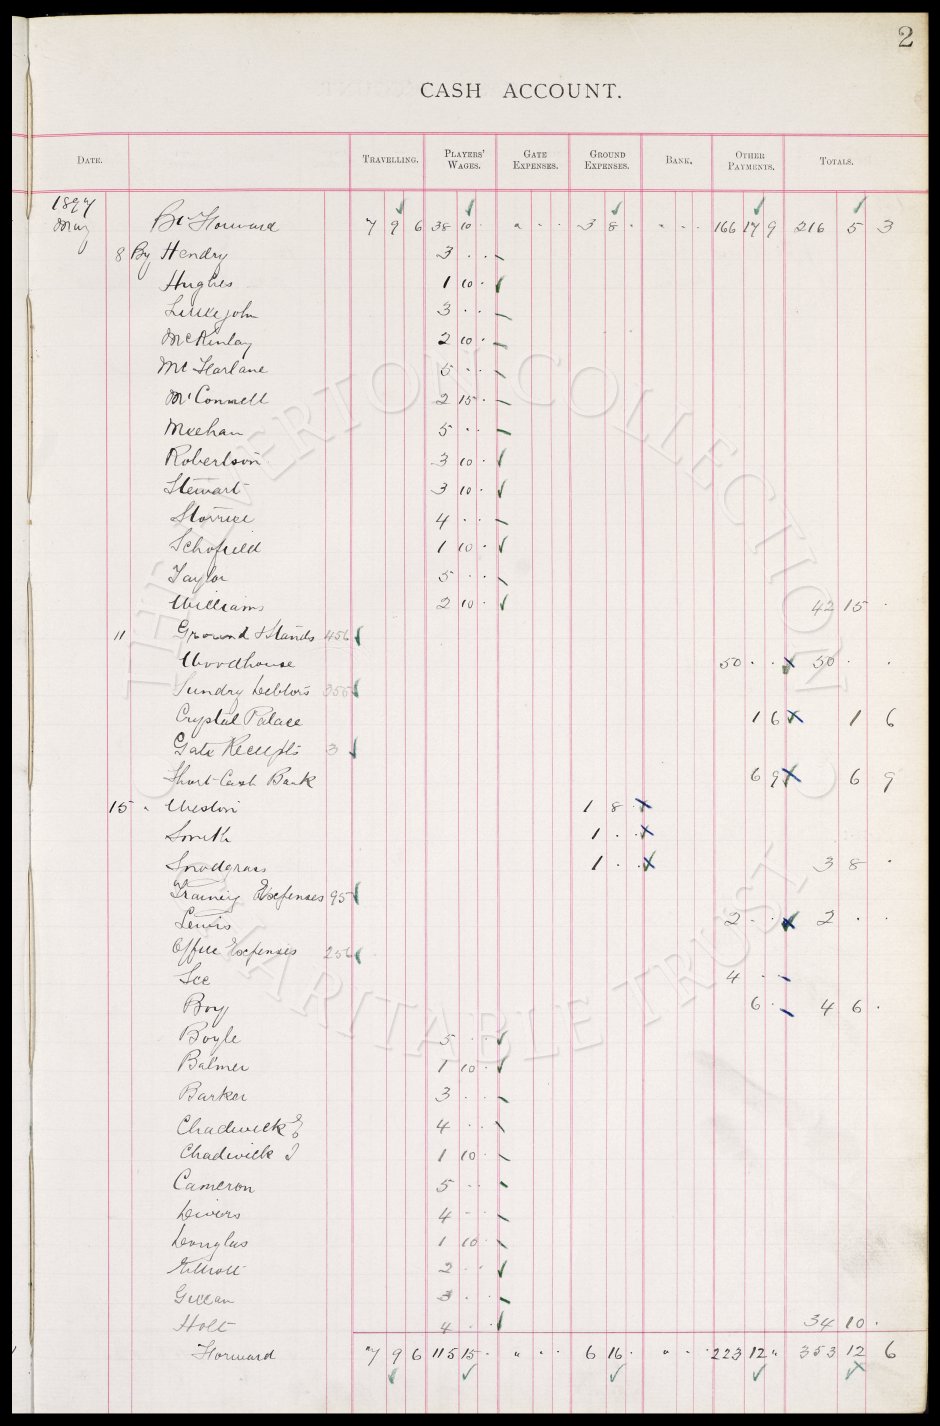 2
CASH ACCOUNT.
DATE. TRAVELLING. PLAYERS' WAGES. GATE EXPENSES. GROUND EXPENSES. BANK. OTHER PAYMENTS. TOTALS.
1897
May Bt Forward 7 9 6 38 10 . " . . 3 8 . " . . 166 17 9 216 5 3
8 By Hendry 3 . .
Hughes 1 10 .
Littlejohn 3 . .
McKinlay 2 10 .
McFarlane 5 . .
McConnell 2 15 .
Meehan 5 . .
Robertson 3 10 .
Stewart 3 10 .
Storrier 4 . .
Schofield 1 10 .
Taylor 5 . .
Williams 2 10 . 42 15 .
11 Ground & Stands 456
Woodhouse 50 . . 50 . .
Sundry Debtors 355
Crystal Palace 1 6 1 6
Gate Receipts 3
Short Cash Bank 6 9 6 9
15 " Weston 1 8 .
Smith 1 . .
Snodgrass 1 . . 3 8 .
Training Expenses 95
Lewis 2 . . 2 . .
Office Expenses 256
Lee 4 . .
Boy 6 . 4 6 .
Boyle 5 . .
Balmer 1 10 .
Barker 3 . .
Chadwick E 4 . .
Chadwick J 1 10 .
Cameron 5 . .
Divers 4 . .
Douglas 1 10 .
Elliott 2 . .
Gillan 3 . .
Holt 4 . . 34 10 .
Forward 7 9 6 115 15 . " . . 6 16 . " . . 223 12 " 353 12 6
THE EVERTON COLLECTION
CHARITABLE TRUST